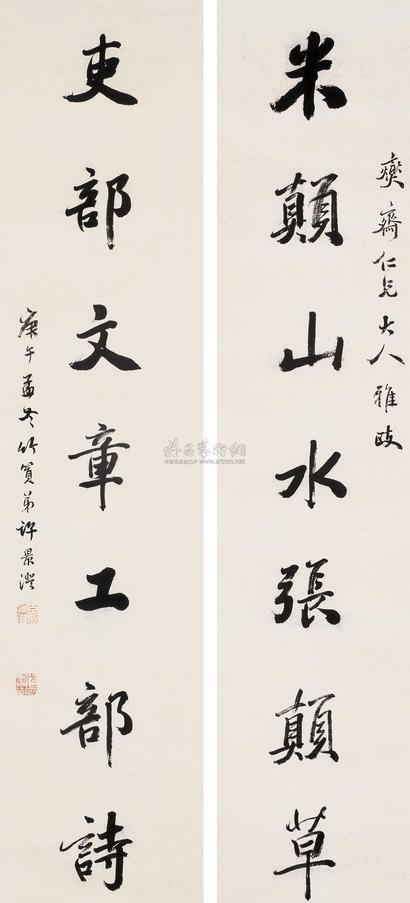 爕齋仁兄大人雅政
米顛山水張顛草
吏部文章工部詩
庚午孟冬竹篔弟許景澄